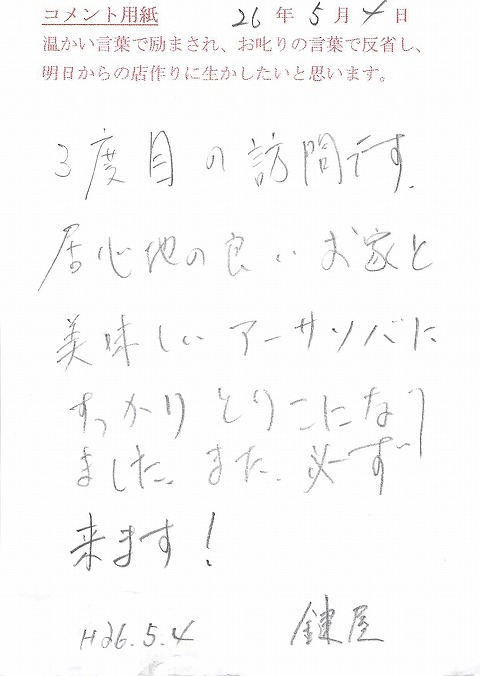 コメント用紙 26年5月4日
温かい言葉で励まされ、お叱りの言葉で反省し、
明日からの店作りに生かしたいと思います。
3度目の訪問です.
居心地の良いお家と
美味しいアーサソバに
すっかりとりこになり
ました。また、必ず
来ます!
H26.5.4 鍵屋